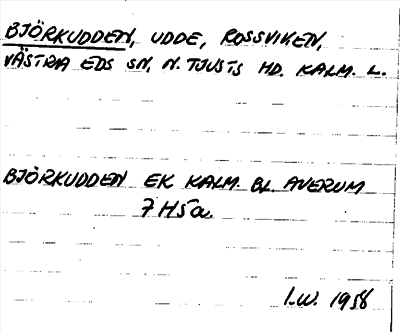 BJÖRKUDDEN, UDDE, ROSSVIKEN,
VÄSTRA EDS SN, N. TJUSTS HD. KALM. L.
BJÖRKUDDEN EK KALM. BL. AVERUM
7H5a
I.W. 1958